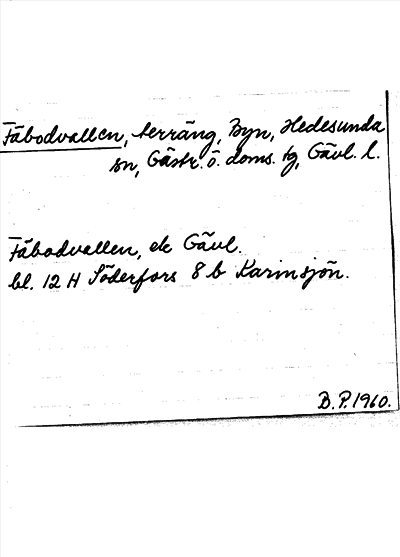 Fäbodvallen, terräng, Byn, Hedesunda
sn, Gästr. ö. doms. tg, Gävl. l.
Fäbodvallen, ek Gävl.
bl. 12 H Söderfors 8 b Karinsjön.
B.P. 1960.